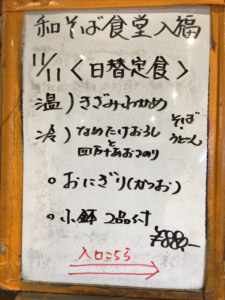 和そば食堂入福
11/11 〈日替定食〉
温) きざみわかめ
冷) なめたけおろし
と
四万十あおのり
そば
・うどん
○ おにぎり(かつお)
○ 小鉢 2品付
¥880,-
入口こちら